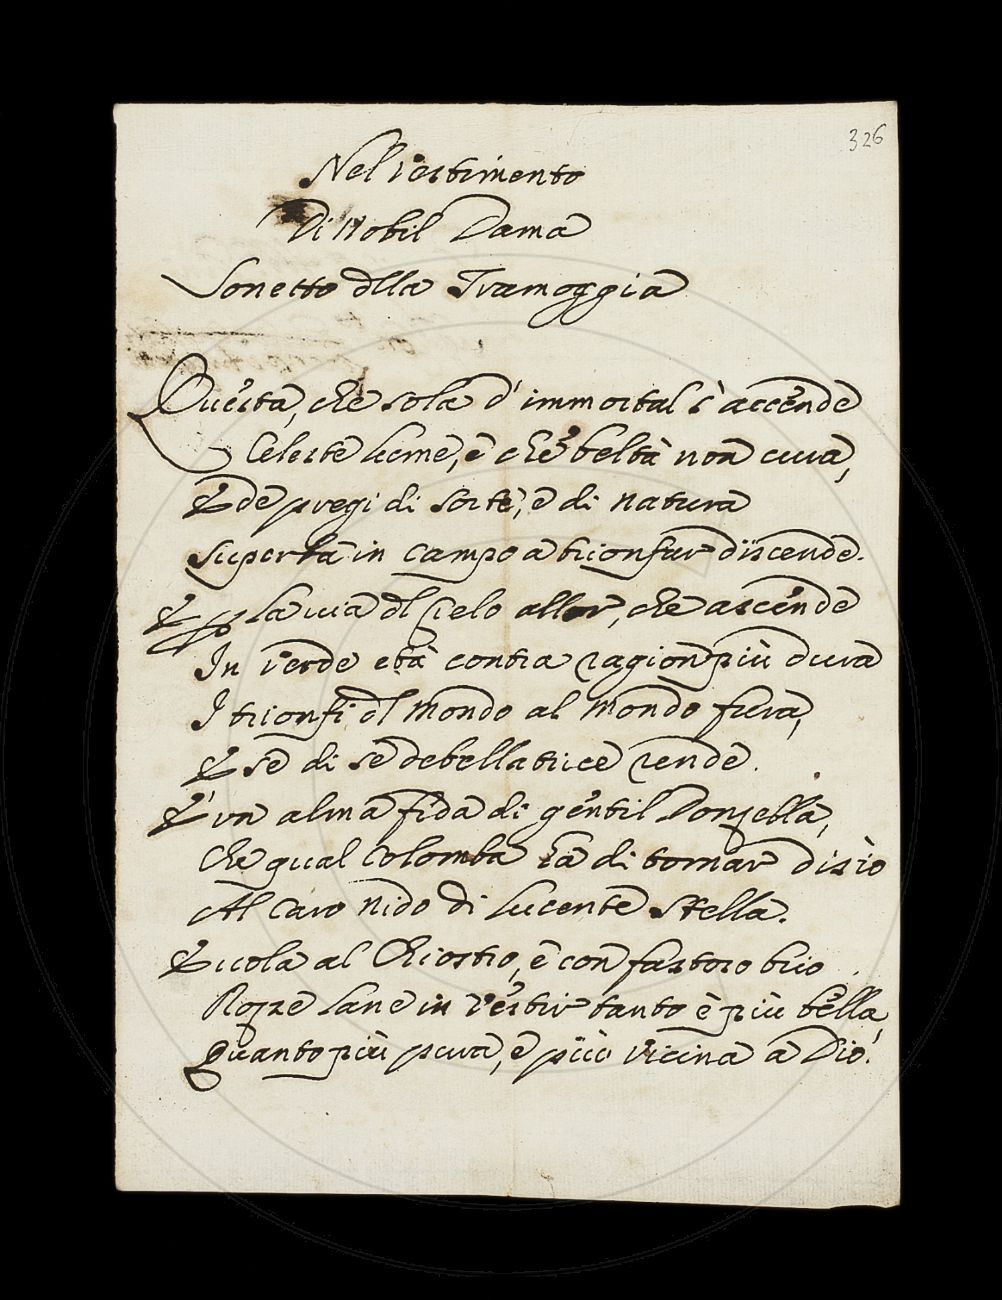 326
Nel Vestimento
Di Nobil Dama
Sonetto dlla Tramoggia
Questa, che sola d'immortal s'accende
Celeste lume, e che beltà non cura,
E de pregi di sorte, e di natura
Superba in campo a trionfar discende.
E p la via dl Cielo allor, che ascende
In verde età contra ragion più dura
I trionfi dl Mondo al Mondo fura,
E se di se debellatrice rende.
E' un alma fida di gentil Donzella,
Che qual Colomba ha di tornar disio
Al Caro Nido di lucente Stella.
E vola al Chiostro, e con fastoso brio
Rozze lane in vestir tanto è più bella
Quanto più pura, e più vicina a Dio.